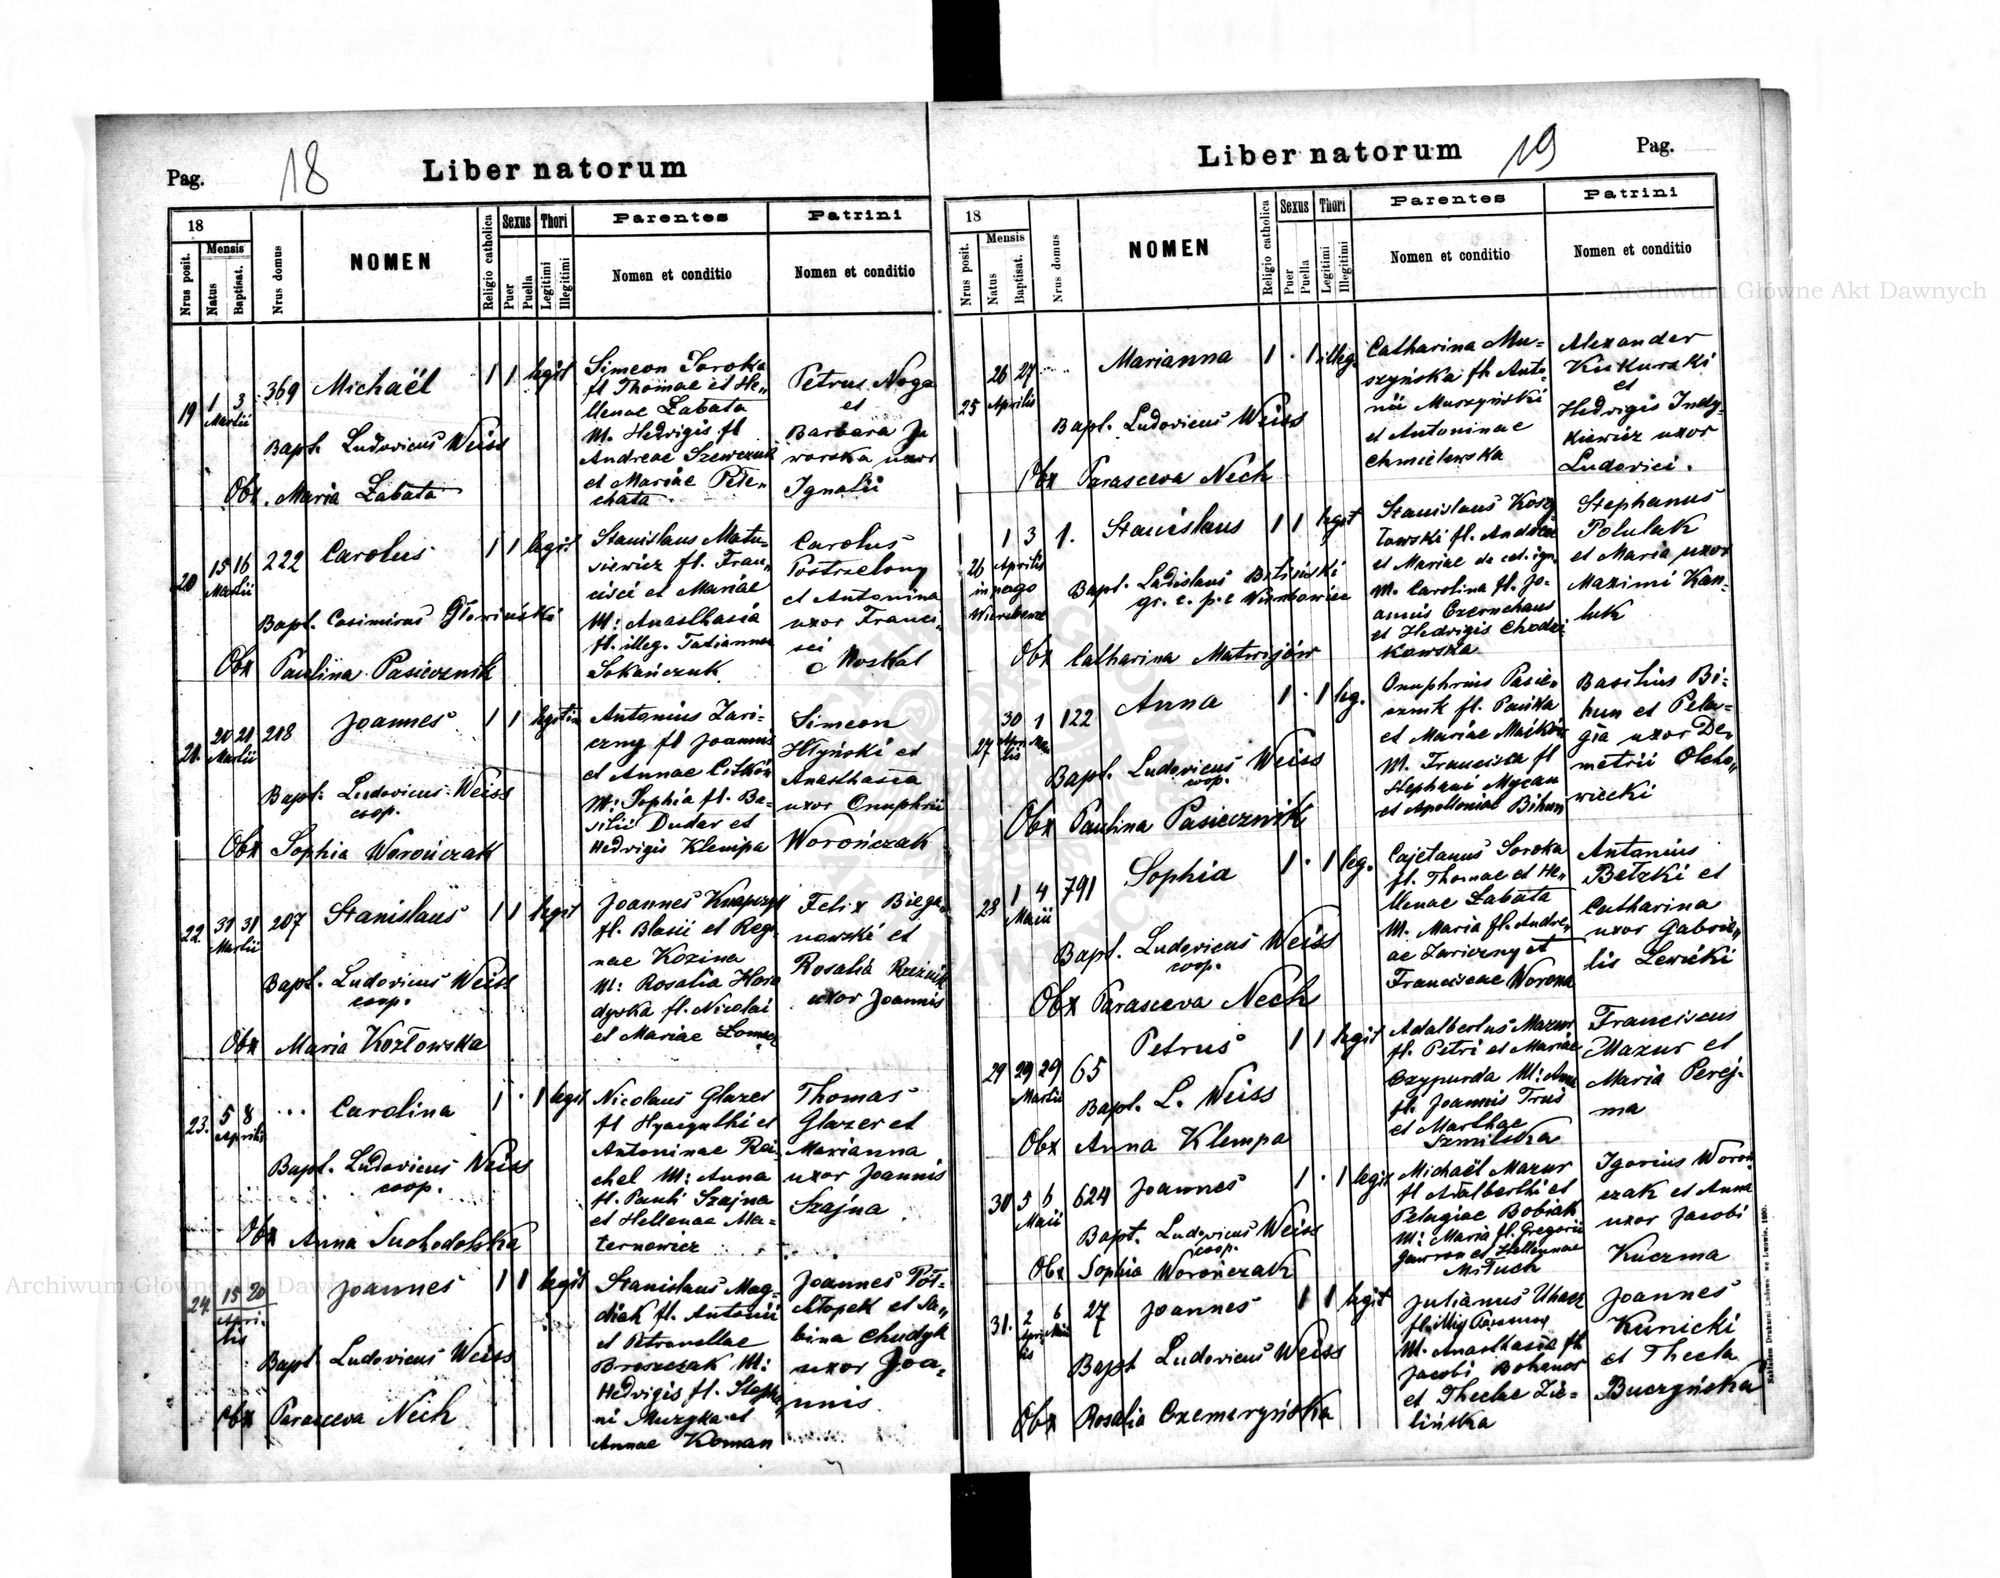 Pag. 18 Liber natorum
18
Mensis
Nrus posit.
Natus
Baptisat.
Nrus domus
NOMEN
Religio catholica
Sexus
Puer
Puella
Thori
Legitimi
Illegitimi
Parentes
Nomen et conditio
Patrini
Nomen et conditio
19 1 3 Martii 369 Michaël 1 1 legit
Bapt. Ludovicus Weiss
Obx. Maria Łabata
Simeon Soroka
fl Thomae et He„
llenae Łabata
M. Hedvigis fl
Andreae Szewczuk
et Mariae Pete„
chata
Petrus Noga
et
Barbara Ja
worska uxor
Ignatii
20 15 16 Martii 222 Carolus 1 1 legit
Bapt. Casimirus
Obx Paulina Pasiecznik
Stanislaus Matu-
siewicz fl. Fran„
cisci et Mariae
M: Anasthasia
fl. illeg. Tatiannae
Sokańczuk
Carolus
Postrzelony
et Antonina
uxor Franci-
sci
Moskal
21. 20 21 Martii 218 Joannes 1 1 legitim
Bapt: Ludovicus Weiss
coop.
Obx Sophia Worończak
Antonius Zari-
czny fl Joannis
et Annae
M: Sophia fl. Ba-
silii Dudar et
Hedvigis Klempa
Simeon
Hłyński et
Anasthasia
uxor Onuphrii
Worończak
22. 31 31 Martii 207 Stanislaus 1 1 legit
Bapt. Ludovicus Weiss
coop.
Obx Maria Kozłowska
Joannes
fl. Blasii et Regi-
nae Kozina
M: Rosalia Horo
dyska fl. Nicolai
et Mariae
Felix Biega„
nowski et
Rosalia
uxor Joannis
23. 5 8 Aprilis ... Carolina 1 . 1 legit
Bapt. Ludovicus Weiss
coop.
Obx Anna Suchodolska
Nicolaus Glazer
fl Hyacynthi et
Antoninae Rei-
chel M: Anna
fl. Pauli Szajna
et Hellenae Ma-
ternowicz
Thomas
Glazer et
Marianna
uxor Joannis
Szajna
24. 15 20 Apri-
lis
Joannes 1 1 legit
Bapt Ludovicus Weiss
Obx Parasceva Nech
Stanislaus Mag-
diak fl. Antonii
et Petronellae
Broszczak M:
Hedvigis fl. Stepha„
ni Muzyka et
Annae Koman
Joannes Pół-
chłopek et Sa„
bina Chudyk
uxor Joa-
nnis
Liber natorum 19 Pag.
18
Mensis
Nrus posit.
Natus
Baptisat.
Nrus domus
NOMEN
Religio catholica
Sexus
Puer
Puella
Thori
Legitimi
Illegitimi
Parentes
Nomen et conditio
Patrini
Nomen et conditio
25 26 27 Aprilis Marianna 1 . 1 illeg.
Bapt. Ludovicus Weiss
Obx Parasceva Nech
Catharina Mu-
szyńska fl. Anto-
nii Muszyński
et Antoninae
Chmielewska
Alexander
Kukurski
et
Hedvigis Indy-
kiewicz uxor
Ludovici.
26 1 3 Aprilis
in pago
1. Stanislaus 1 1 legit
Bapt. Ladislaus
gr. c. p. e
Obx Catharina Matwijów
Stanislaus Kosz
towski fl. Andreae
et Mariae de cet. ign.
M. Carolina fl. Jo-
annis Czernehaus
et Hedvigis Chodzi
kowska
Stephanus
Polulak
et Maria uxor
Maximi Kan-
luk
27 30 1 Apri-
lis Maii
122 Anna 1 . 1 leg.
Bapt. Ludovicus Weiss
coop.
Obx Paulina Pasiecznik
Onuphrius Pasie„
cznik fl. Pańka
et Mariae
M. Francisca fl
Stephani Mycan
et Apolloniae Bihun
Basilius Bi-
hun et Pela-
gia uxor De„
metrii Olcho„
wiecki
28 1 4 Maii 791 Sophia 1 . 1 leg.
Bapt. Ludovicus Weiss
coop.
Obx Parasceva Nech
Cajetanus Soroka
fl. Thomae et He„
llenae Łabata
M. Maria fl. Andre„
ae Zariczny et
Franciscae Worona
Antonius
Betzki et
Catharina
uxor Gabrie„
lis Lewicki
29 29 29 Martii 65 Petrus 1 1 legit
Bapt. L. Weiss
Obx Anna Klempa
Adalbertus Mazur
fl. Petri et Mariae
Czypurda M: Anna
fl. Joannis Trus
et Marthae
Szmilska
Franciscus
Mazur et
Maria Perej-
ma
30 5 6 Maii 624 Joannes 1 . 1 legit
Bapt. Ludovicus Weiss
coop.
Obx Sophia Worończak
Michaël Mazur
fl Adalberthi et
Pelagiae Bobiak
M: Maria fl. Gregorii
Gawron et Hellennae
Misuch
Igorius Woroń
czak et Anna
uxor Jacobi
Kuczma
31. 2 6 Apri-
lis Maii
27 Joannes 1 1 legit
Bapt Ludovicus Weiss
Obx Rosalia Czemeryńska
Julianus Uhacz
fl. illeg
M. Anasthasia fl.
Jacobi Bohanos
et Theclae Zie-
lińska
Joannes
Kunicki
et Thecla
Buczyńska
Nakładem Drukarni Ludowej we Lwowie. 1890.
Archiwum Główne Akt Dawnych
Archiwum Główne Akt Dawnych